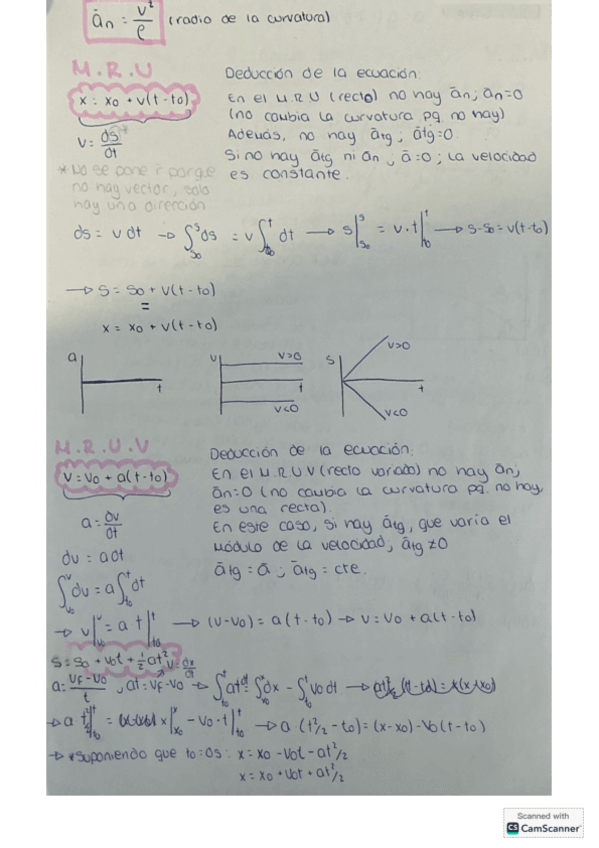 ān = v²/ρ (radio de la curvatura)
M.R.U
x = x0 + v(t-t0)
v = ds/dt
*No se pone r porque
no hay vector, solo
hay una dirección
Deducción de la ecuación:
En el M.R.U (recto) no hay ān; an=0
(no caubia la curvatura pq no hay)
Además, no hay ātg; ātg=0.
Si no hay ātg ni ān; ā=0; la velocidad
es constante.
ds = v dt → ∫s0 s ds = v ∫t0 t dt → s|s0 s = v·t|t0 t → s-s0 = v(t-t0)
→ s = s0 + v(t-t0)
=
x = x0 + v(t-t0)
a t
v v>0 t v<0
s v>0 t v<0
M.R.U.V
v = v0 + a(t-t0)
Deducción de la ecuación:
En el M.R.U.V (recto variado) no hay ān;
ān=0 (no caubia la curvatura pq no hay,
es una recta).
En este caso, si hay ātg, que varía el
módulo de la velocidad, ātg ≠0
ātg = ā ; ātg = cte.
a = dv/dt
dv = adt
∫v0 v dv = a ∫t0 t dt
→ v|v0 v = a t|t0 t → (v-v0) = a(t-t0) → v = v0 + a(t-t0)
s = s0 + v0t + ½at² v = dx/dt
a = vf-v0/t , at = vf-v0 → ∫t0 t at dt = ∫ dx - ∫ v0 dt →
→ a t²/2|t0 t = x|x0 x - v0·t|t0 t → a (t²/2 - t0) = (x-x0) - v0(t-t0)
→ *suponiendo que t0=0s: x = x0 - v0t - at²/2
x = x0 + v0t + at²/2
Scanned with
CS CamScanner